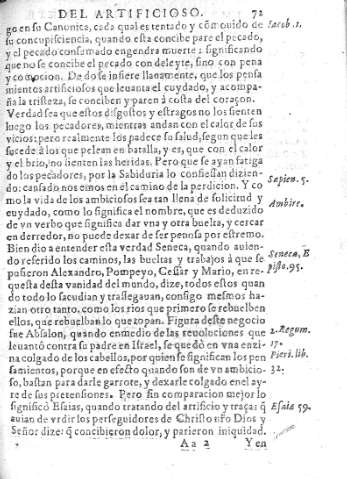 DEL ARTIFICIOSO. 72
go en su Canonica, cada qual es tentado y cōmouido de Iacob. 1.
su concupisciencia, quando esta concibe pare el pecado,
y el pecado consumado engendra muerte: significando
que no se concibe el pecado con deleyte, sino con pena
y comocion. De do se infiere llanamente, que los pensa
mientos artificiosos que leuanta el cuydado, y acompa-
ña la tristeza, se conciben y paren à costa del coraçon.
Verdad sea que estos disgustos y estragos no los sienten
luego los pecadores, mientras andan con el calor de sus
vicios: pero realmente los padece su salud, segun que les
sucede à los que pelean en batalla, y es, que con el calor
y el brio, no sienten las heridas. Pero que se ayan fatiga
do los pecadores, por la Sabiduria lo confiessan dizien-
do: cansado nos emos en el camino de la perdicion. Y co Sapien. 5.
mo la vida de los ambiciosos sea tan llena de solicitud y
cuydado, como lo significa el nombre, que es deduzido Ambire.
de vn verbo que significa dar vna y otra buelta, y cercar
en derredor, no puede dexar de ser penosa por estremo.
Bien dio a entender esta verdad Seneca, quando auien-
do referido los caminos, las bueltas y trabajos à que se Seneca, E
pusieron Alexandro, Pompeyo, Cessar y Mario, en re- pist. 95.
questa desta vanidad del mundo, dize, todos estos quan
do todo lo sacudian y trassegauan, consigo mesmos ha-
zian otro tanto, como los rios que primero se rebuelben
ellos, que rebuelban lo que topan. Figura deste negocio
fue Absalon, quando en medio de las reuoluciones que 2. Regum.
leuantò contra su padre en Israel, se quedò en vna enzi- 17.
na colgado de los cabellos, por quien se significan los pen Pieri. lib.
samientos, porque en efecto quando son de vn ambicio- 32.
so, bastan para darle garrote, y dexarle colgado en el ay-
re de sus pretensiones. Pero sin comparacion mejor lo
significò Esaias, quando tratando del artificio y traças q̃ Esaia 59.
auian de vrdir los perseguidores de Christo nr̃o Dios y
Señor dize: q̃ concibieron dolor, y parieron iniquidad.
Aa 2 Y en